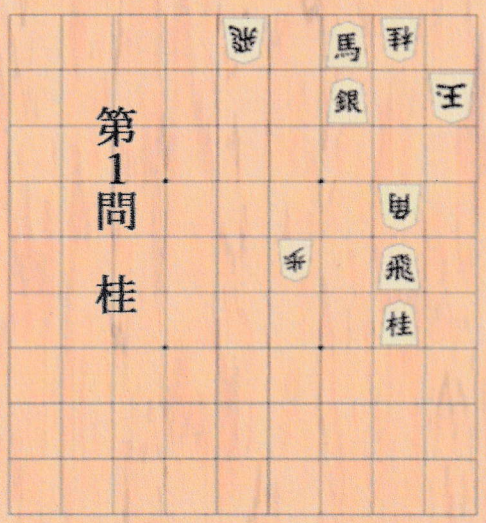 第1問 桂
飛
馬
桂
銀
王
角
歩
飛
桂